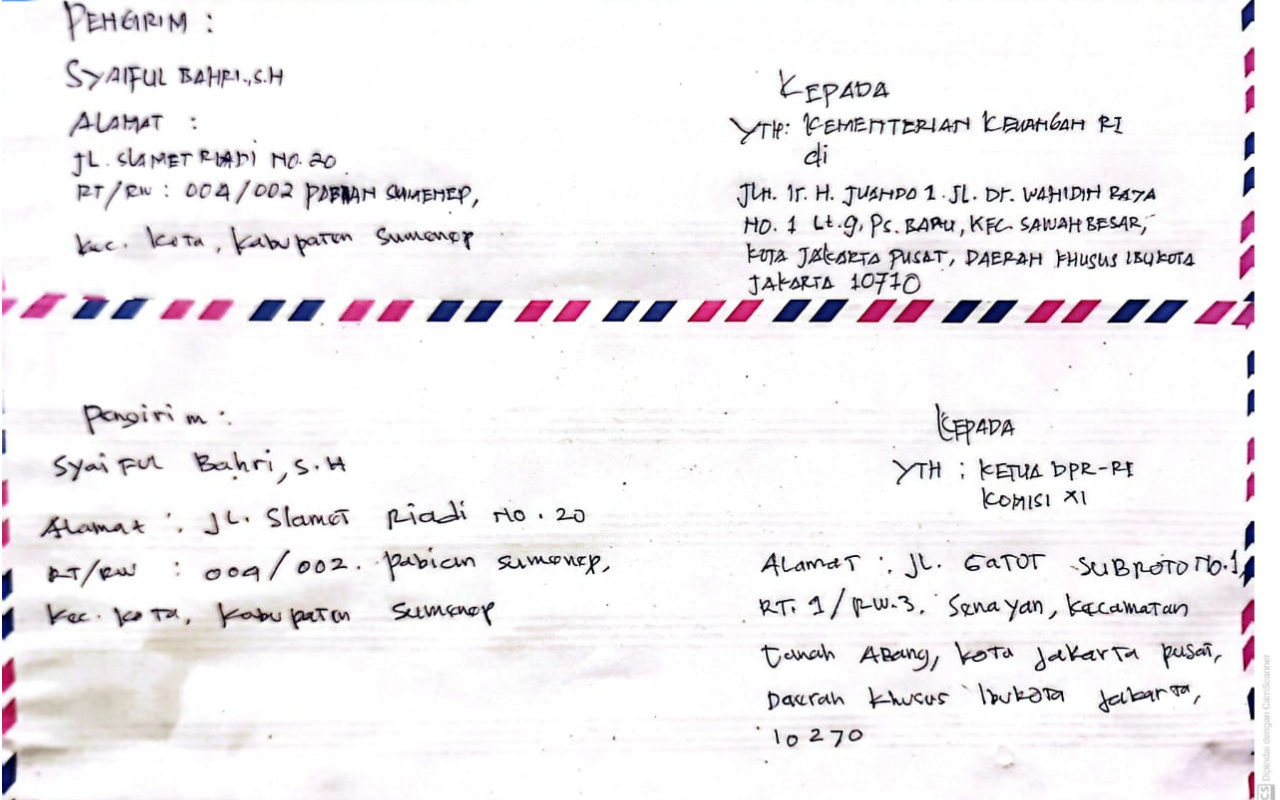 PENGIRIM :
SYAIFUL BAHRI.,S.H
ALAMAT :
JL. SLAMET RIADI NO. 20
RT/RW : 004/002 PABIAN SUMENEP,
Kec. Kota, Kabupaten Sumenep
KEPADA
YTH: KEMENTERIAN KEUANGAN RI
di
JLN. Ir. H. JUANDO 1. JL. Dr. WAHIDIN RAYA
NO. 1 Lt.9, Ps. BARU, KEC. SAWAH BESAR,
KOTA JAKARTA PUSAT, DAERAH KHUSUS IBUKOTA
JAKARTA 10710
Pengirim :
Syaiful Bahri, S.H
Alamat : JL. Slamet Riadi No. 20
RT/RW : 004/002. Pabian Sumenep,
Kec. Kota, Kabupaten Sumenep
KEPADA
YTH : KETUA DPR-RI
KOMISI XI
Alamat : JL. GATOT SUBROTO No.1,
RT. 1/RW.3. Senayan, Kecamatan
Tanah Abang, Kota Jakarta Pusat,
Daerah Khusus Ibukota Jakarta,
10270
CS Dipindai dengan CamScanner